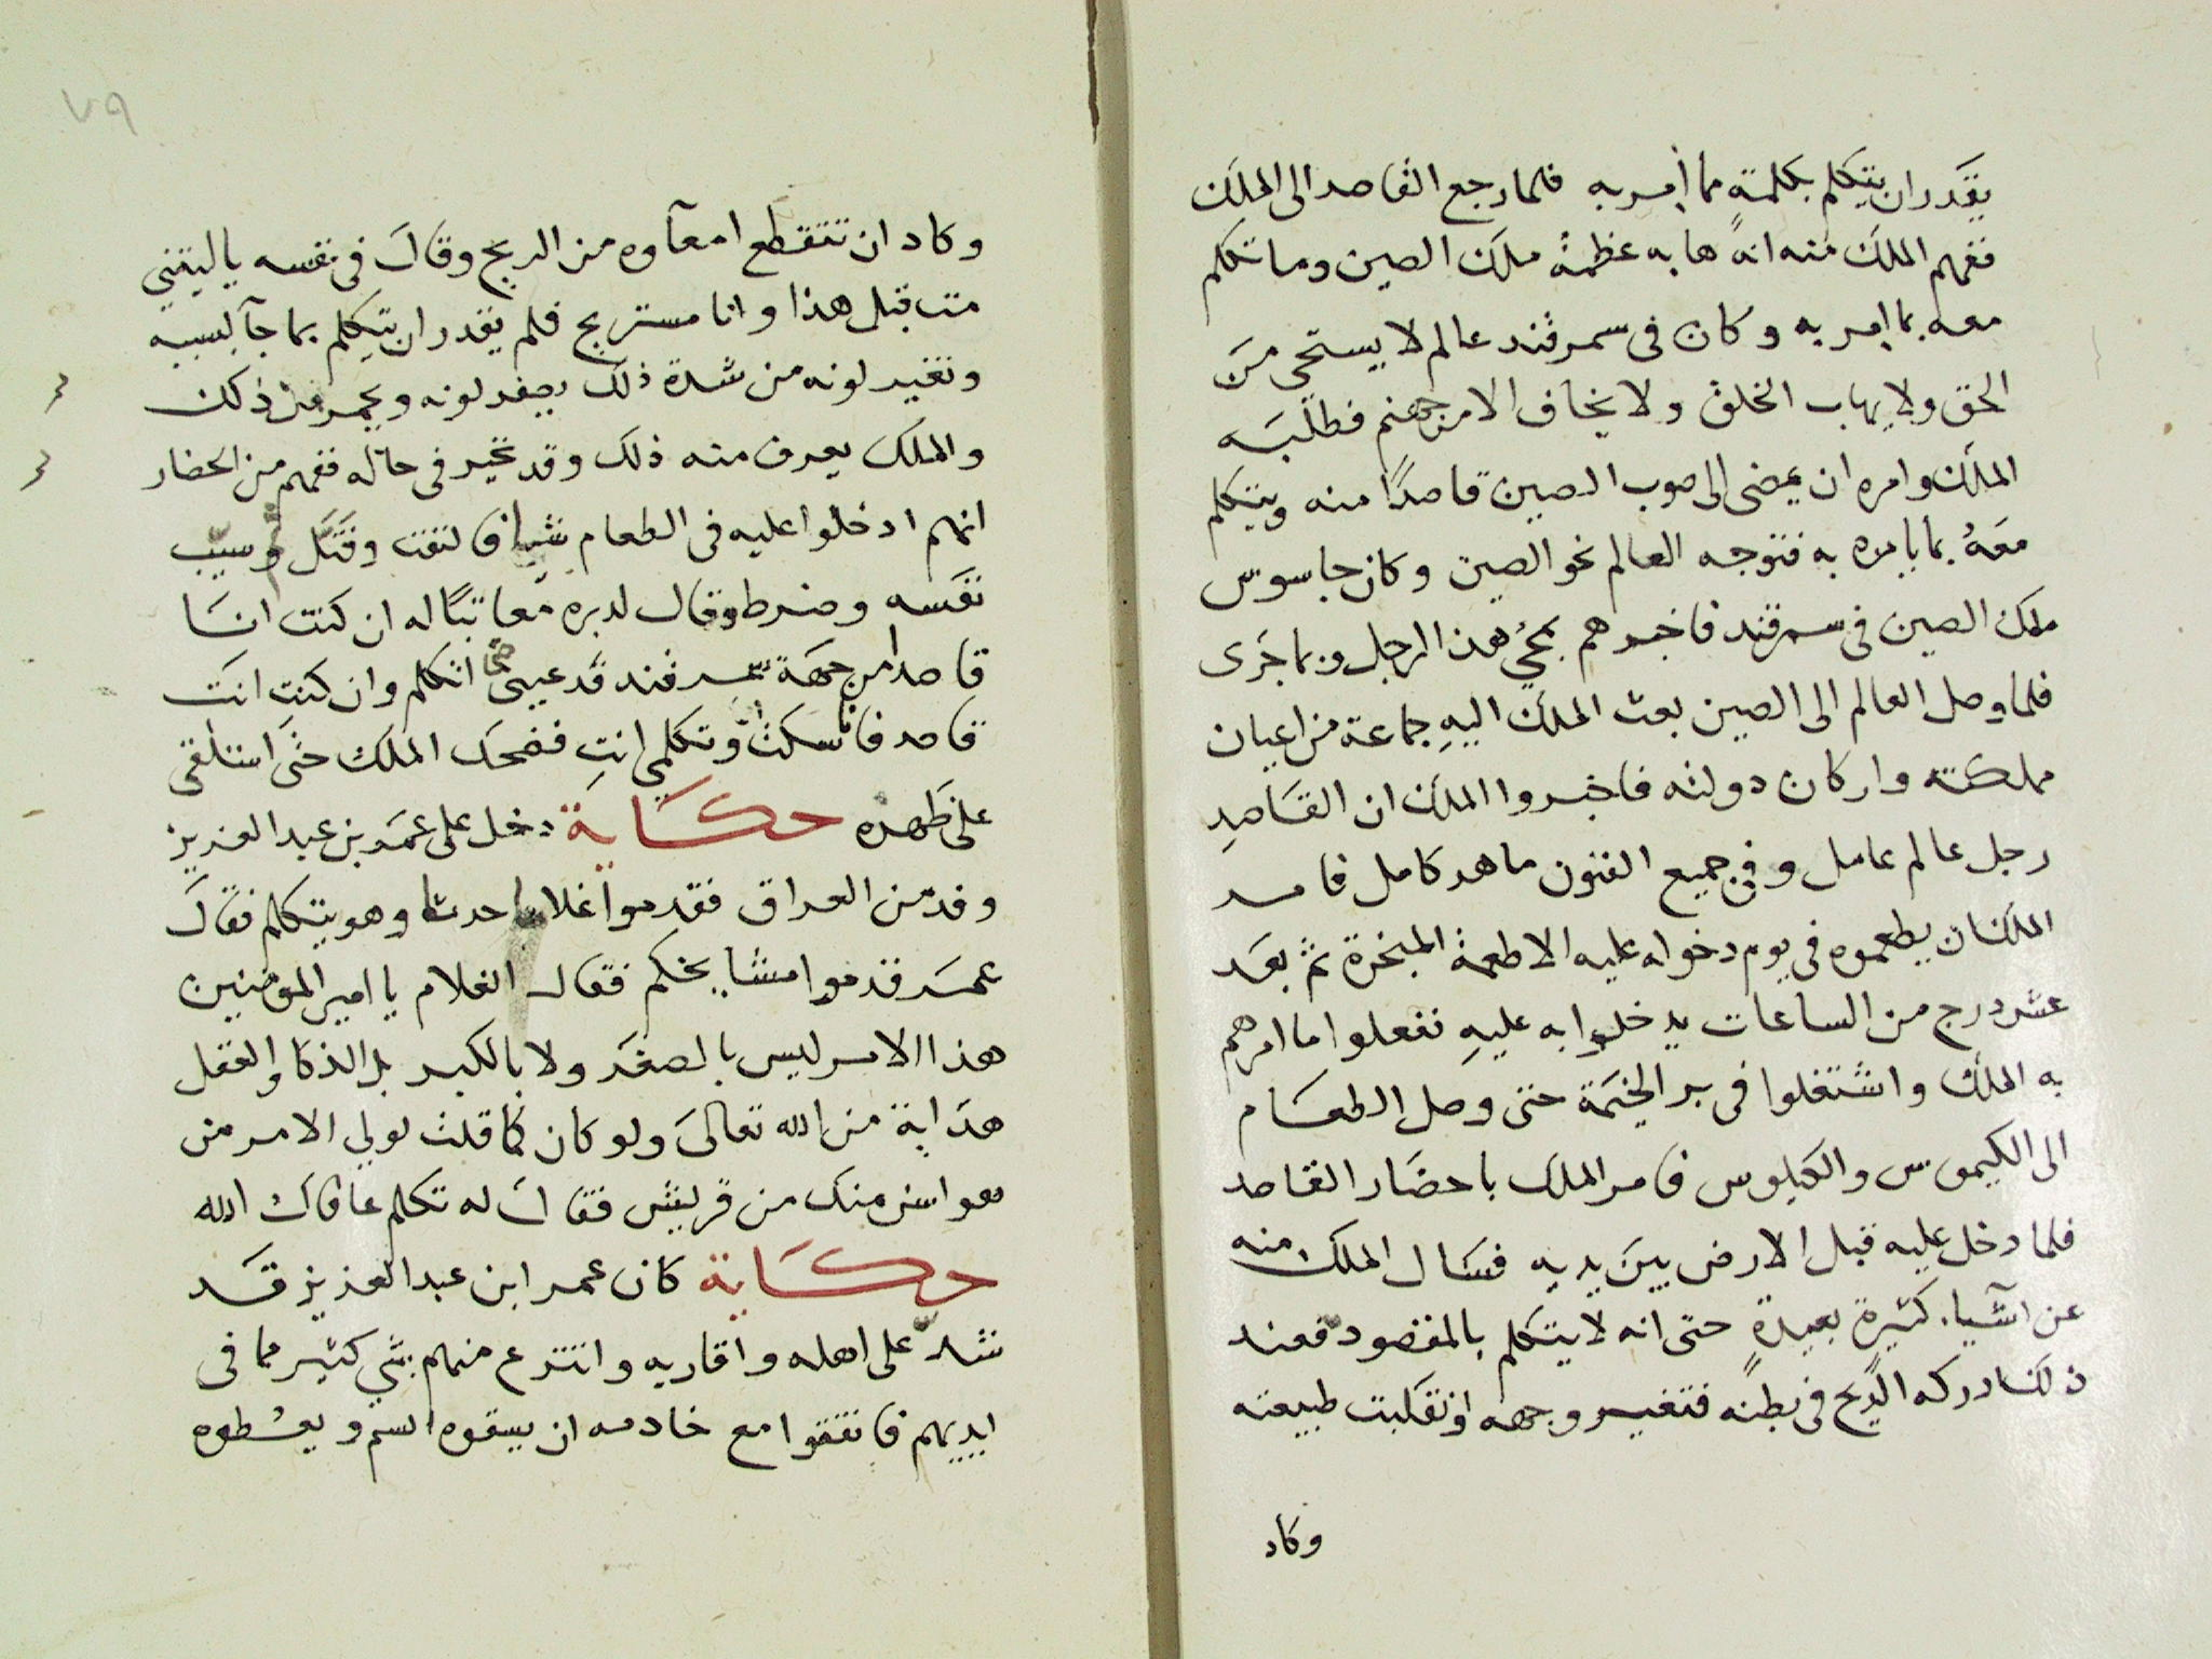 يقدر ان يتكلم بكلمة مما أمر به فلما رجع القاصد الى الملك
ففهم الملك منه انه هابه عظمة ملك الصين وما تكلم
معه بما امر به وكان فى سمرقند عالم لا يستحي من
الحق ولا يهاب الخلق ولا يخاف الا من جهنم فطلبه
الملك وامره ان يمضى الى صوب الصين قاصدًا منه ويتكلم
معهُ بما يامره به فتوجه العالم نحو الصين وكان جاسوس
ملك الصين فى سمرقند فاخبرهم بمجي هذا الرجل وبما جرى
فلما وصل العالم الى الصين بعث الملك اليهِ جماعة من اعيان
مملكته واركان دولته فاخبروا الملك ان القاصد
رجل عالم عامل وفى جميع الفنون ماهر كامل فامر
الملك ان يطعموه فى يوم دخوله عليه الاطعمة المبخرة ثم بعد
عشر درج من الساعات يدخلوا به عليهِ ففعلوا ما امرهم
به الملك واشتغلوا فى حتى وصل الطعام
الى الكيموس والكيلوس فامر الملك باحضار القاصد
فلما دخل عليه قبل الارض بين يديه فسال الملك منه
عن اشيا كثيرة بعيدةٍ حتى انه لا يتكلم بالمقصود فعند
ذلك ادركه الريح فى بطنه فتغير وجهه وانقلبت طبيعته
وكاد
٧٩
وكاد ان تتقطع امعآوه من الريح وقال فى نفسه ياليتني
مت قبل هذا وانا مستريح فلم يقدر ان يتكلم بما جآ بسببه
وتغير لونه من شدة ذلك يصفر لونه ويحمر من ذلك
والملك يعرف منه ذلك وقد تحير فى حاله ففهم من الحضار
انهم ادخلوا عليه فى الطعام شيا فالتفت وسيب
نفسه وضرط وقال لدبره معاتبًا له ان كنت انا
قاصدا من جهة سمرقند فدعينى حتى اتكلم وان كنتِ انت
قاصد فانا اسكت وتكلمي انتِ فضحك الملك حتى استلقى
على ظهره حكاية دخل على عمر بن عبد العزيز
وفد من العراق فقدموا غلاما حدثا وهو يتكلم فقال
عمر قدموا مشايخكم فقال الغلام يا امير المومنين
هذا الامر ليس بالصغر ولا بالكبر بل الذكا والعقل
هداية من الله تعالى ولو كان كما قلت لولي الامر من
هو اسن منك من قريش فقال له تكلم عافاك الله
حكاية كان عمر ابن عبد العزيز قد
شدّ على اهله واقاربه وانتزع منهم شي كثير مما فى
ايديهم فاتفقوا مع خادمه ان يسقوه السم ويعطوه